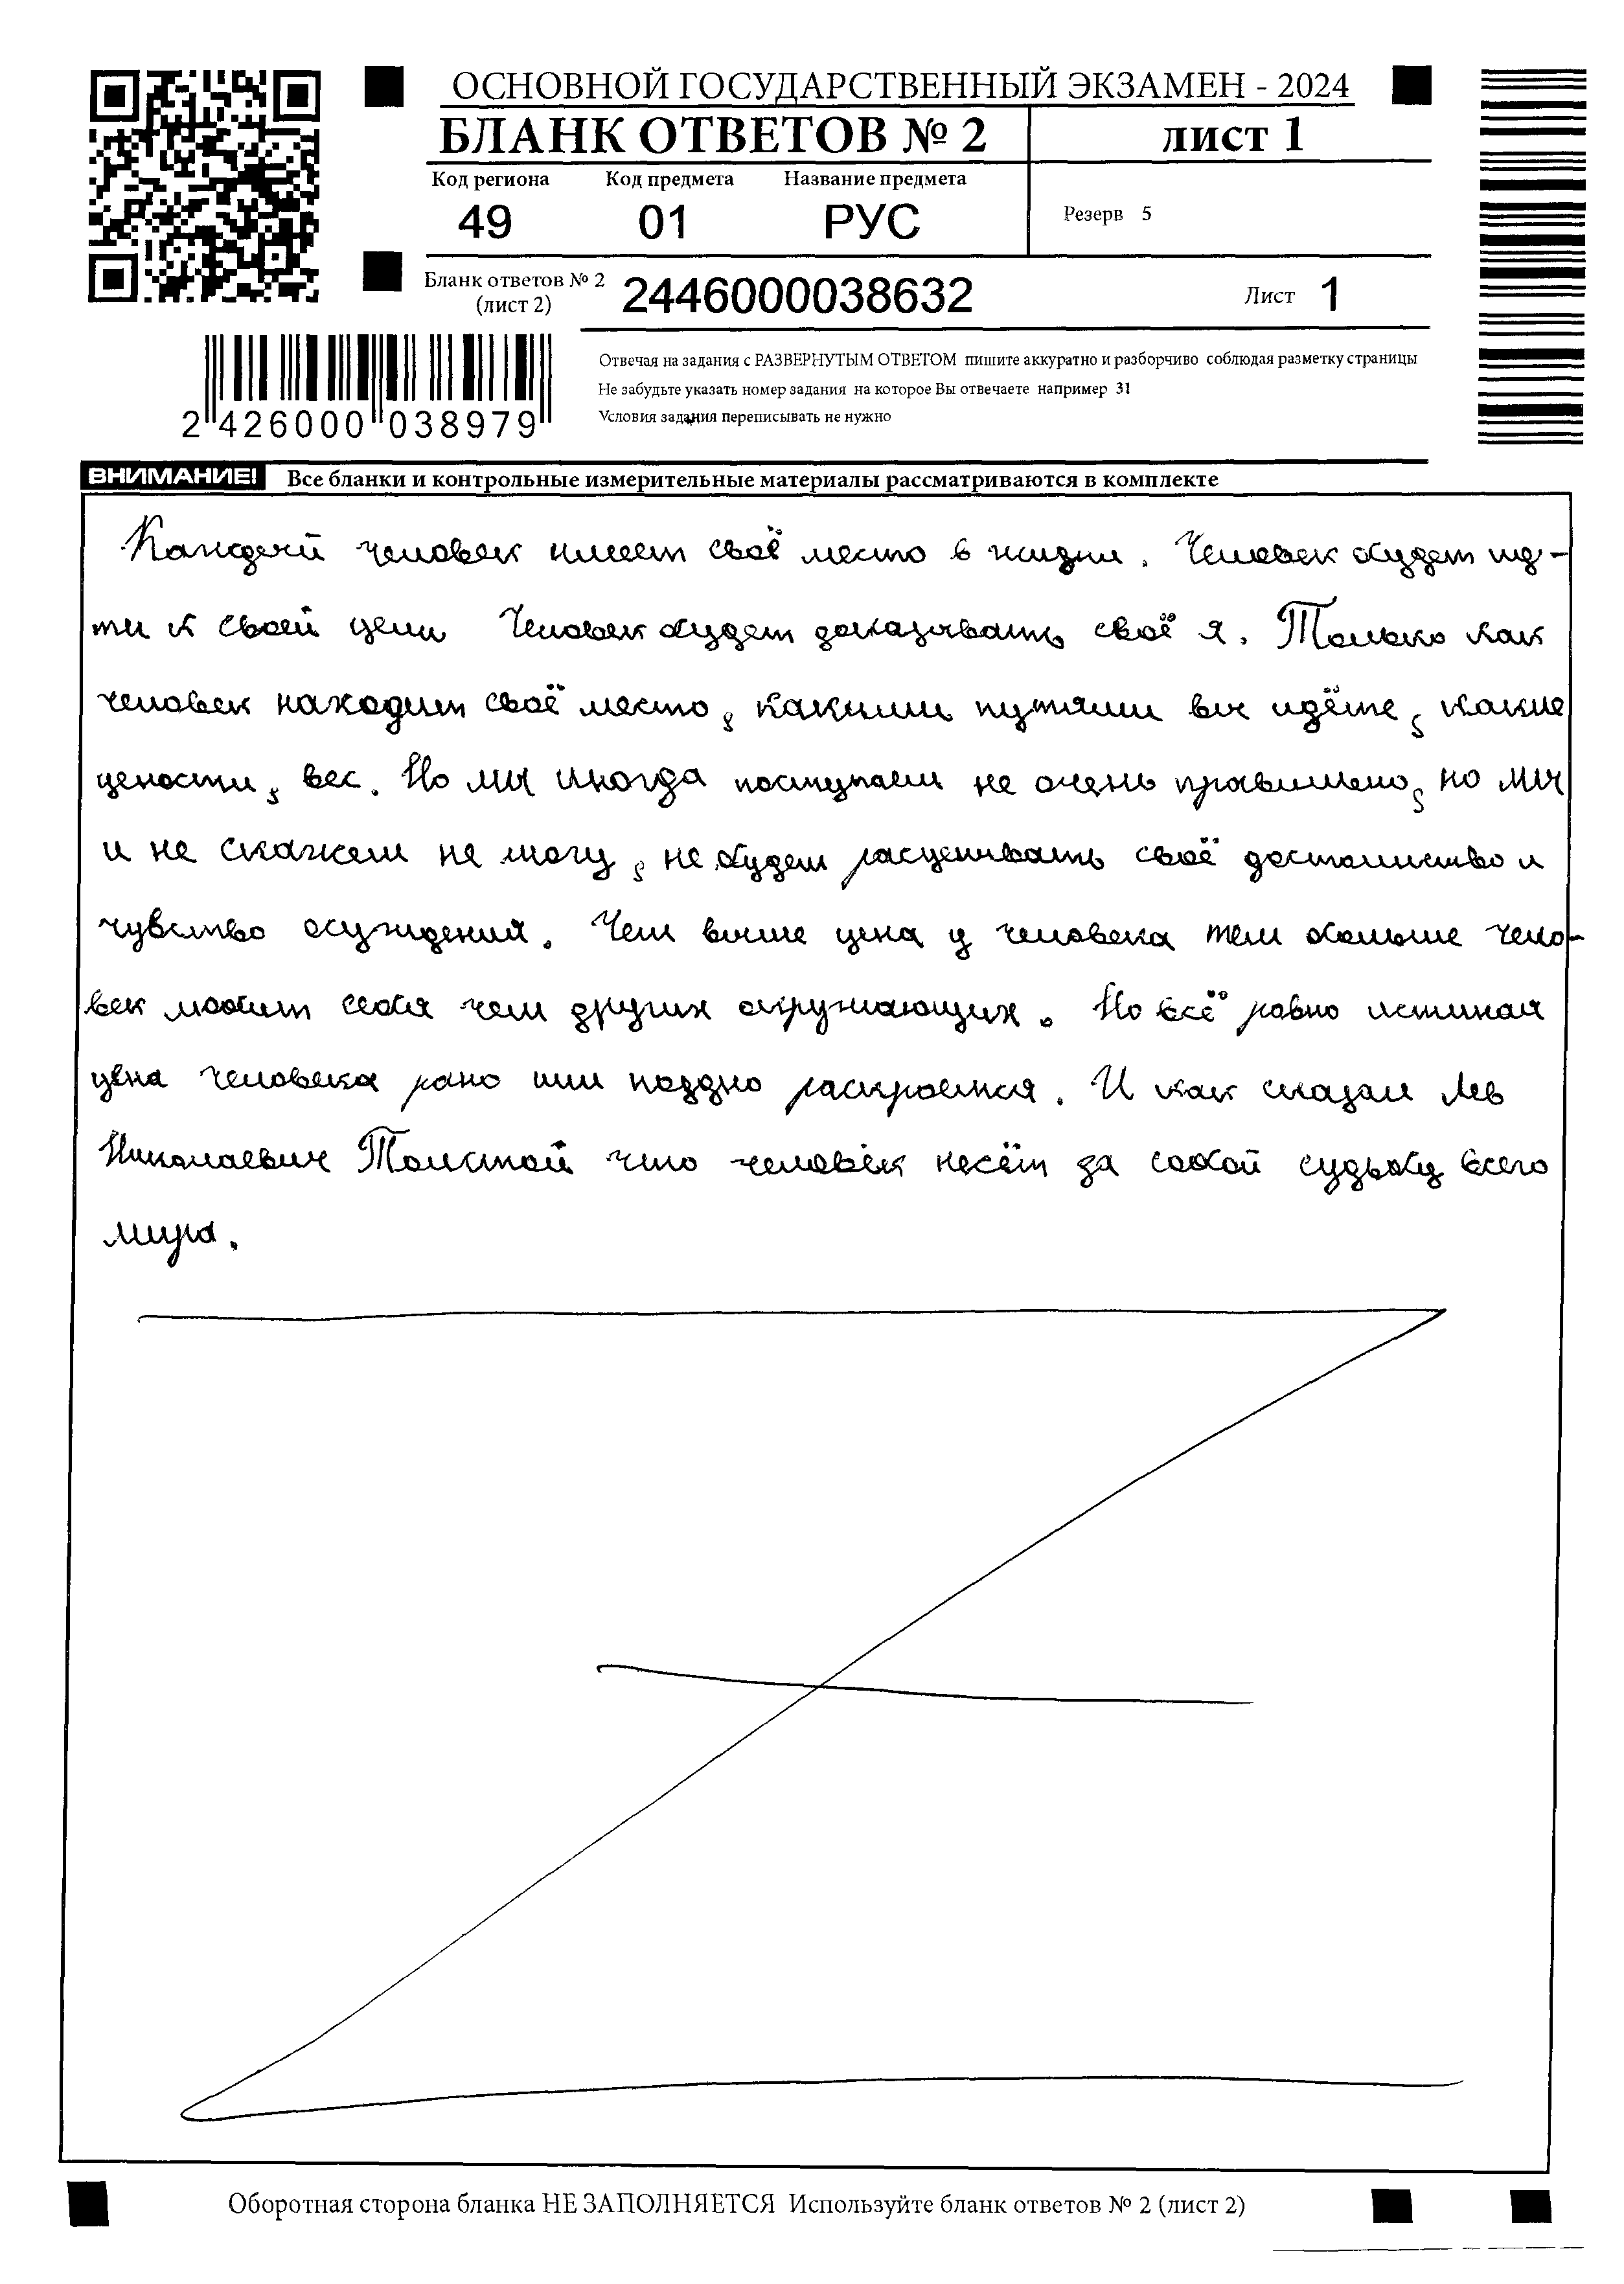 ОСНОВНОЙ ГОСУДАРСТВЕННЫЙ ЭКЗАМЕН - 2024
БЛАНК ОТВЕТОВ № 2
лист 1
Код региона Код предмета Название предмета
49 01 РУС
Резерв 5
Бланк ответов № 2 (лист 2) 2446000038632
Лист 1
2 426000 038979
Отвечая на задания с РАЗВЕРНУТЫМ ОТВЕТОМ пишите аккуратно и разборчиво соблюдая разметку страницы
Не забудьте указать номер задания на которое Вы отвечаете например 31
Условия задания переписывать не нужно
ВНИМАНИЕ! Все бланки и контрольные измерительные материалы рассматриваются в комплекте
Каждый человек имеет своё место в жизни. Человек будет ид-
ти к своей цели Человек будет доказывать своё я. Только как
человек находит своё место, какими путями вы идёте, какие
цености, вес. Но мы иногда поступаем не очень правильно, но мы
и не скажем не могу, не будем расценивать своё достоинство и
чувство осуждения. Чем выше цена у человека тем больше чело-
век любит себя чем других окружающих. Но всё ровно истиная
цена человека рано или поздно раскроется. И как сказал Лев
Николаевич Толстой что человек несёт за собой судьбу всего
мира.
Оборотная сторона бланка НЕ ЗАПОЛНЯЕТСЯ Используйте бланк ответов № 2 (лист 2)